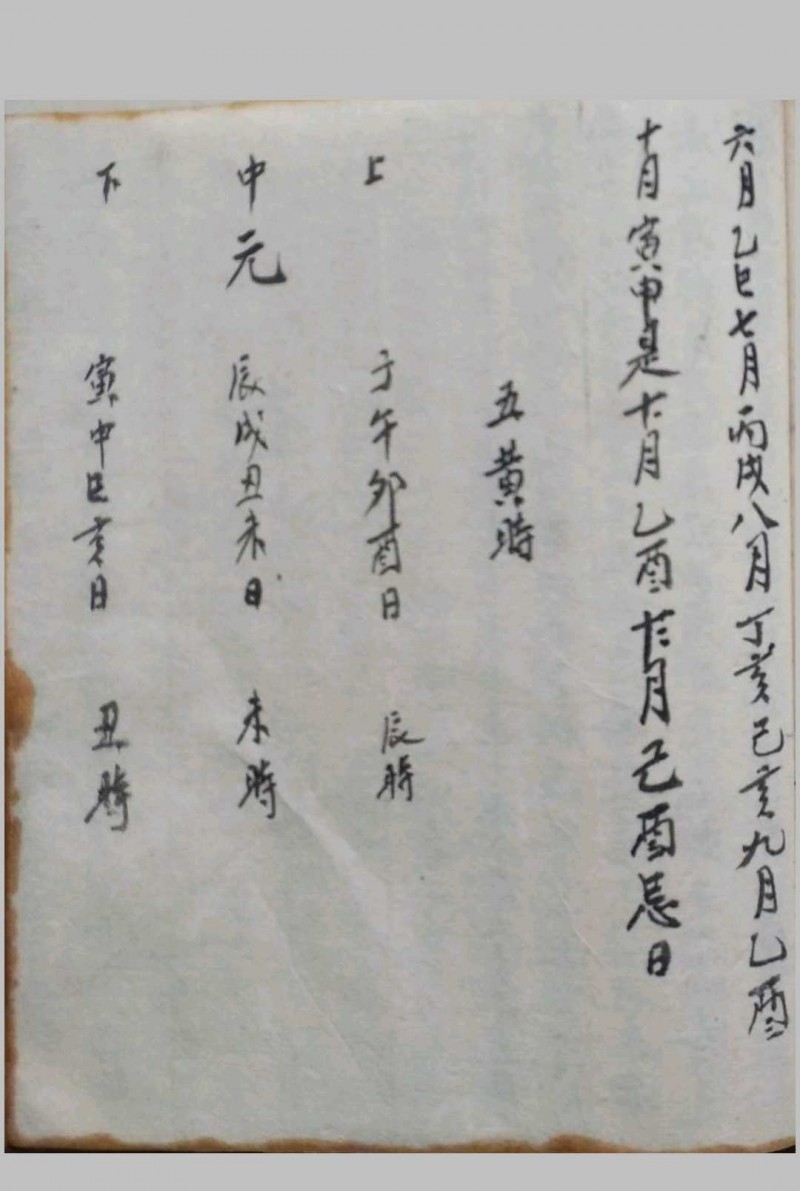 六月乙巳七月丙戌八月丁亥己亥九月乙酉
十月寅申是十一月乙酉十二月己酉忌日
五黄時
上 子午卯酉日 辰時
中元 辰戌丑未日 未時
下 寅申巳亥日 丑時